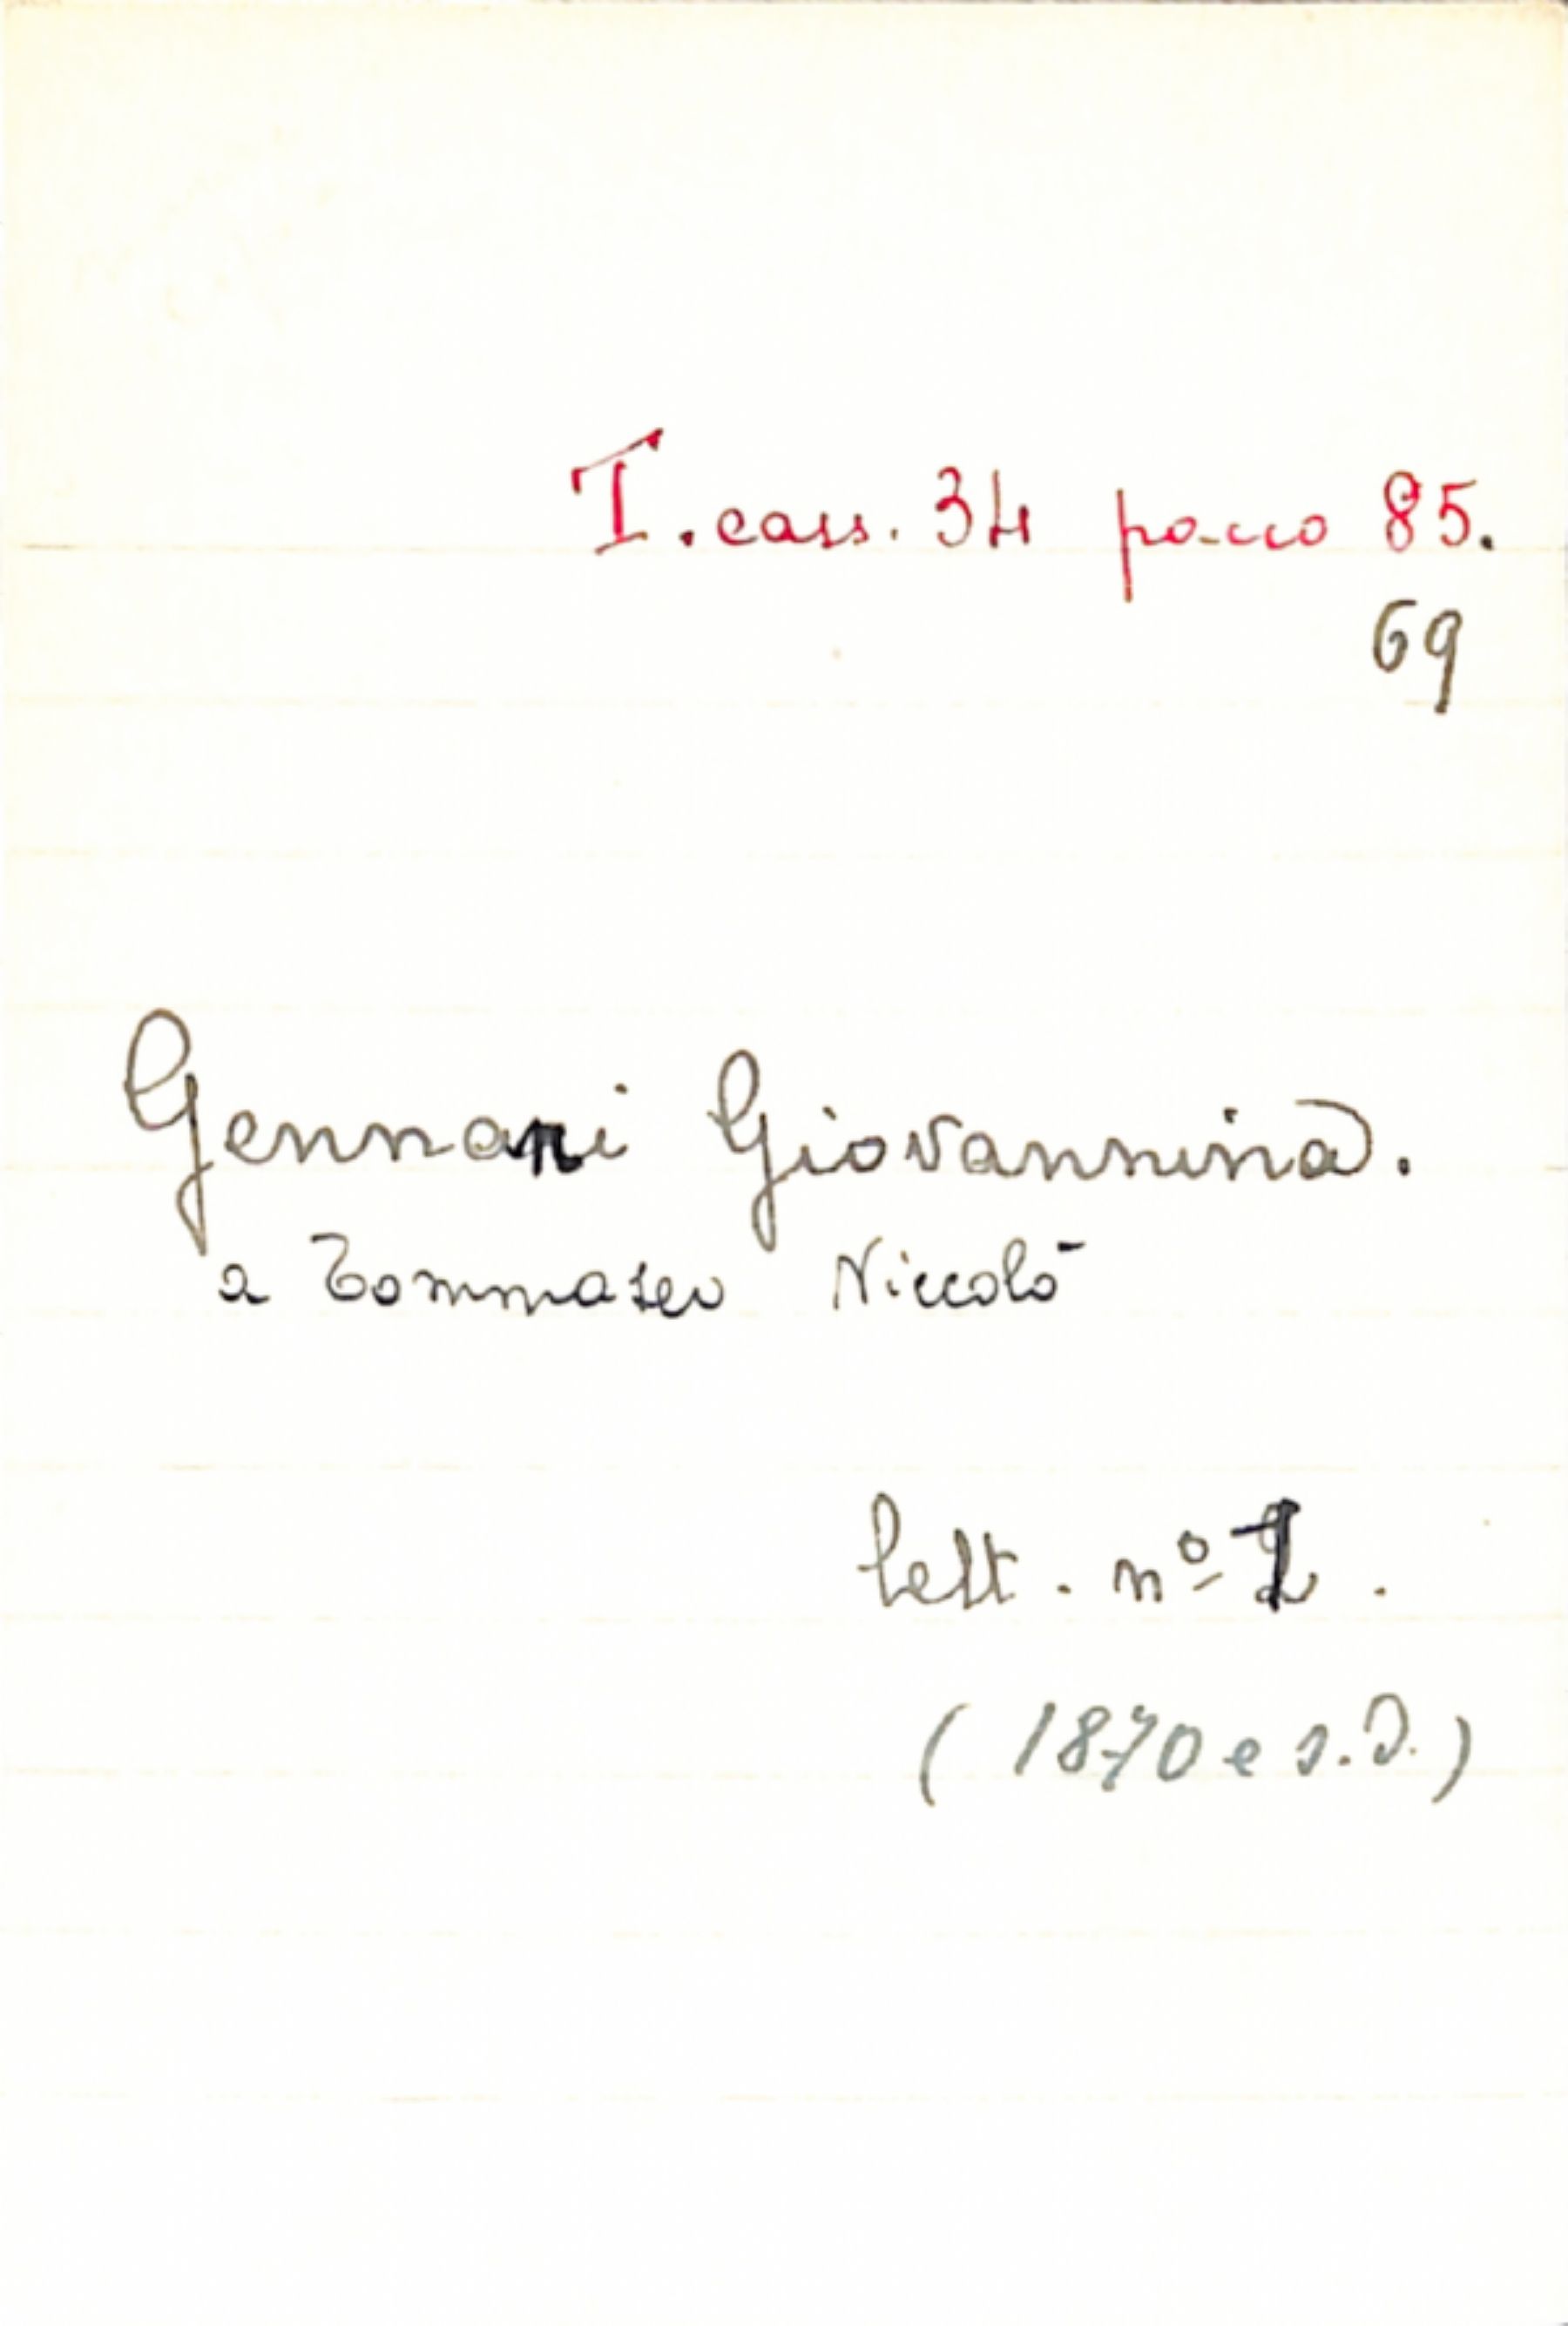 T. cass. 34 pacco 85.
69
Gennari Giovannina.
a Tommaseo Niccolò
lett. nº
(1870 e s.d.)